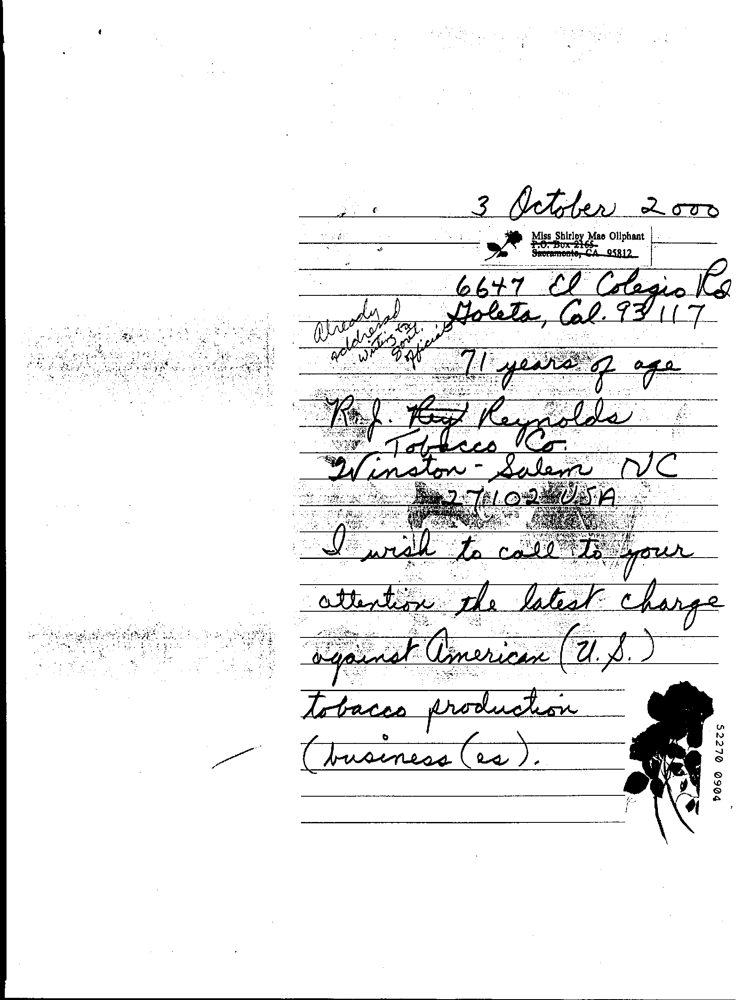 3 October 2000
Miss Shirley Mae Oliphant
P.O. Box 2165
Sacramento, CA 95812
6647 El Colegio Rd
Goleta, Cal. 93117
Already
addressed
writing to
Govt.
Officials
71 years of age
R.J. Rey Reynolds
Tobacco Co.
Winston-Salem NC
27102 USA
I wish to call to your
attention the latest charge
against American (U.S.)
tobacco production
(business(es).
52270 0904